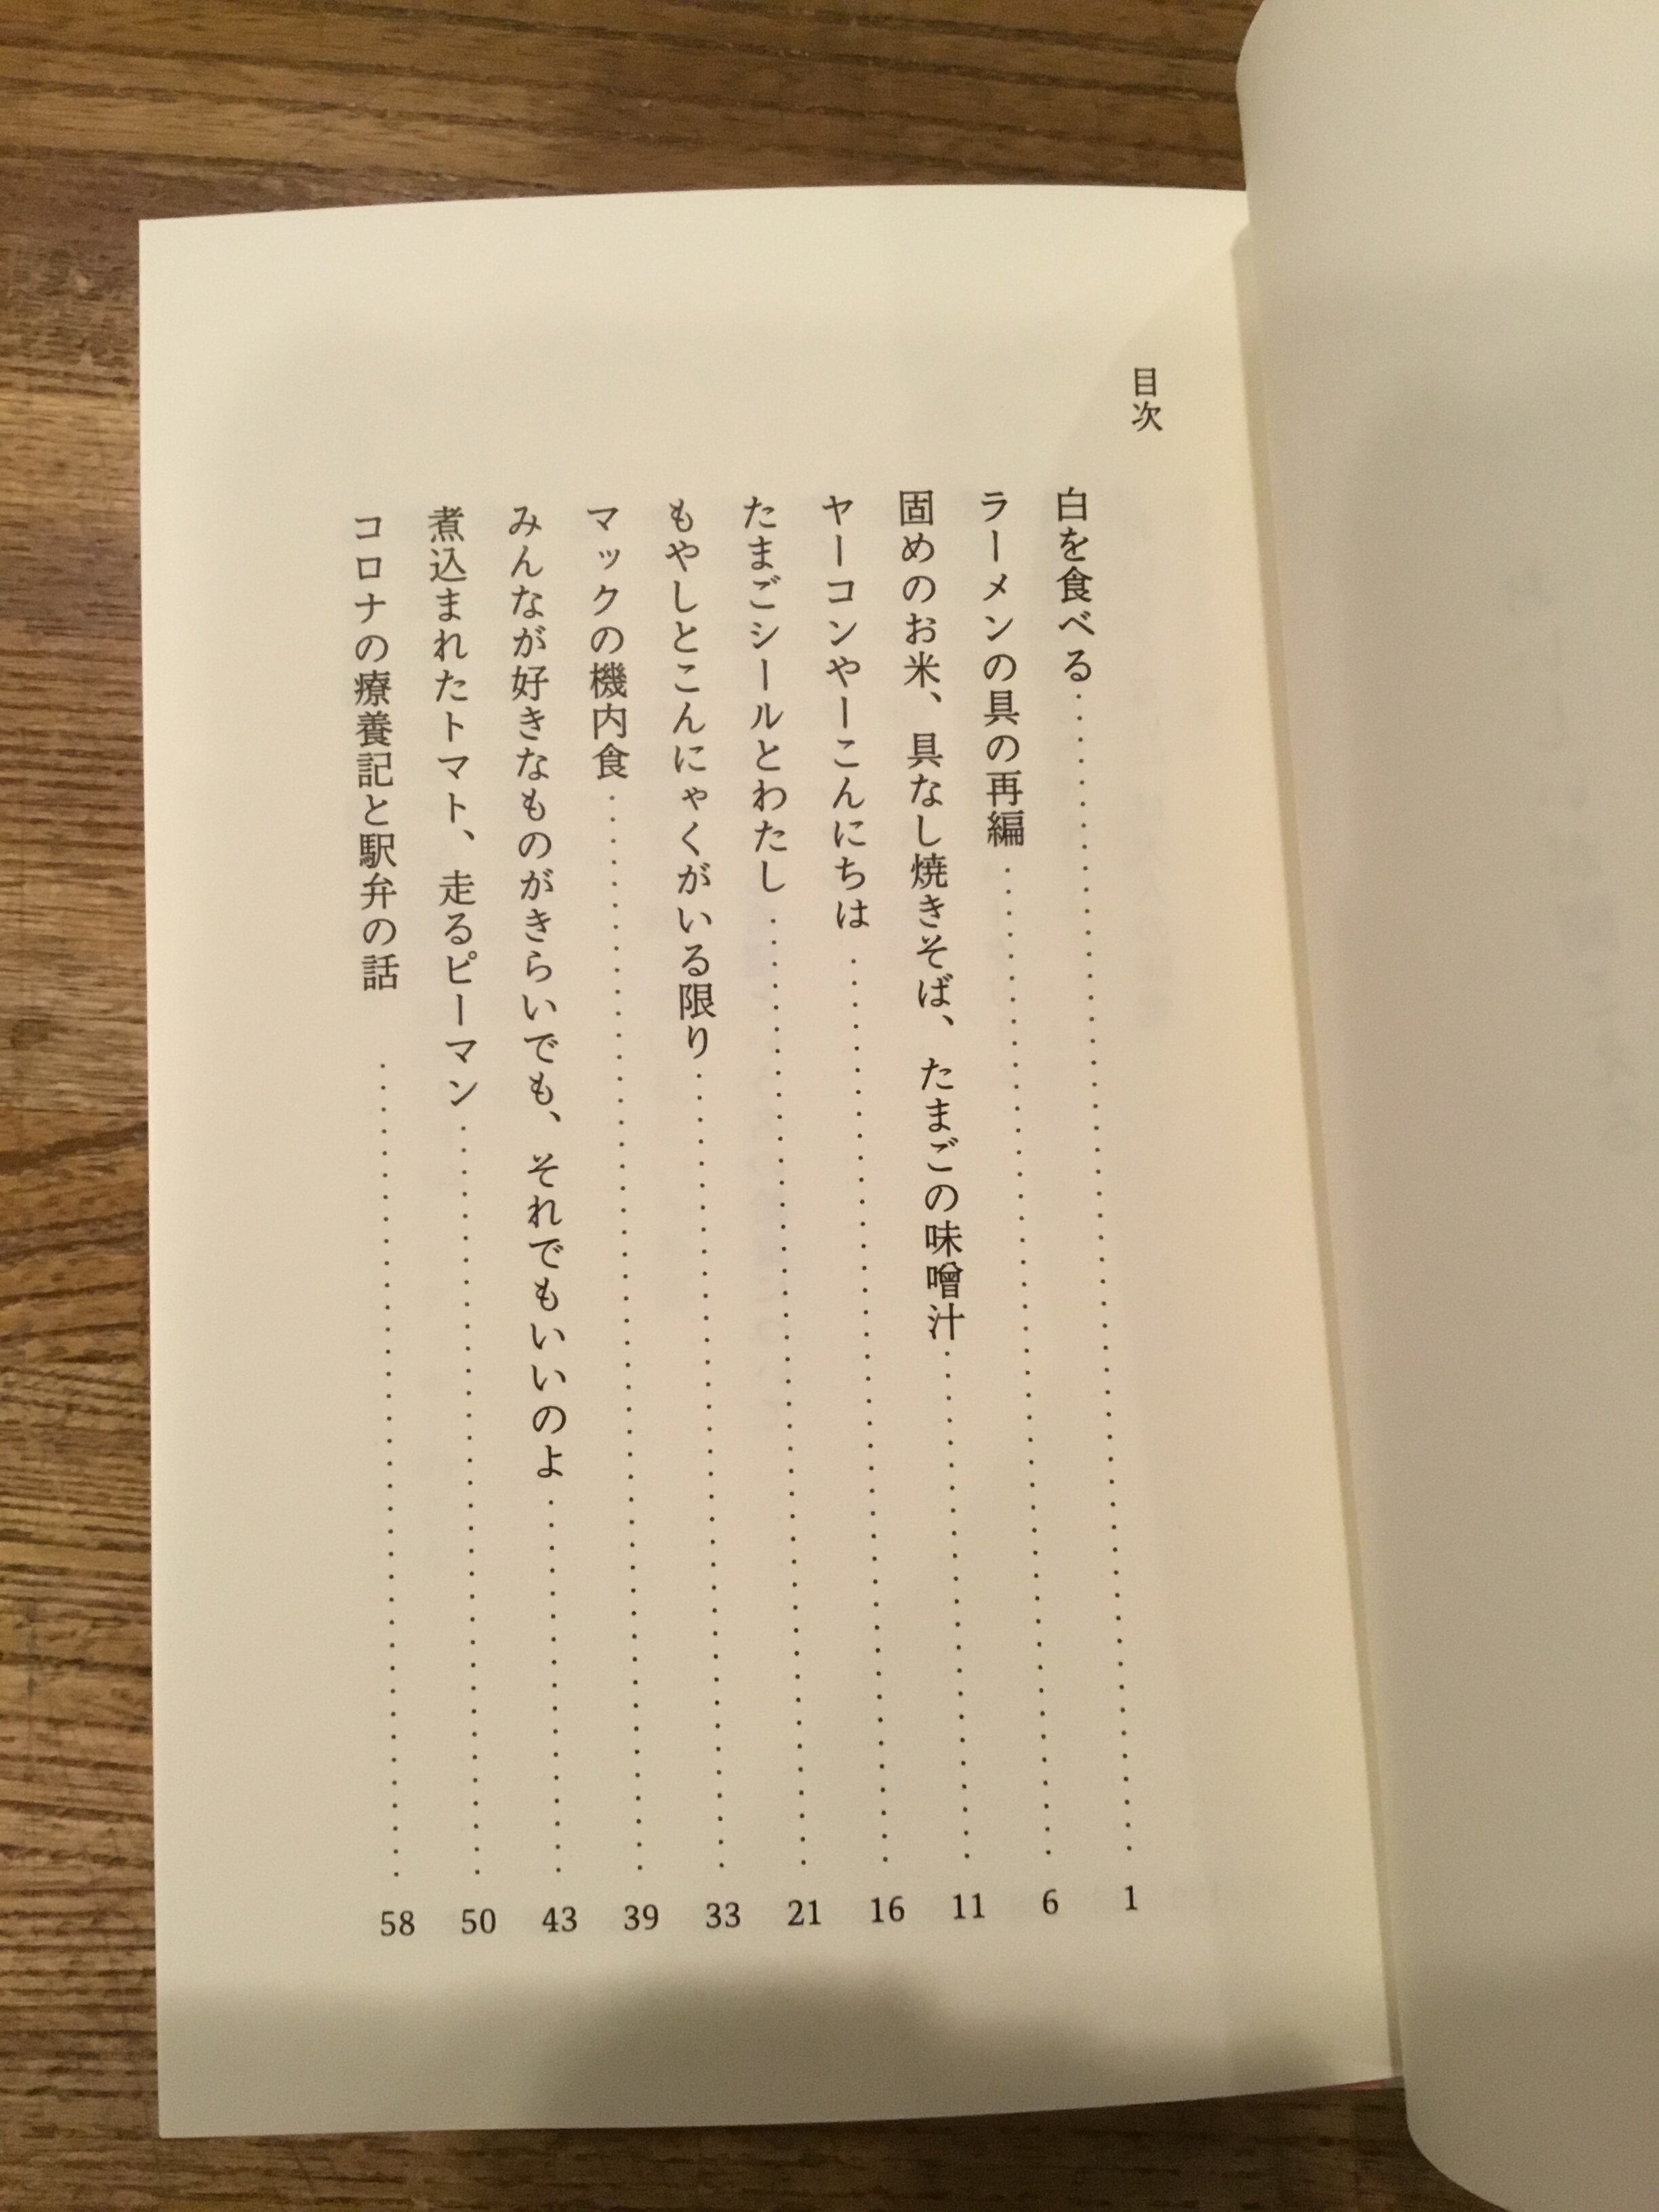 目次
白を食べる‥‥‥‥‥‥‥‥‥‥‥‥‥‥‥‥‥‥‥‥‥‥‥‥‥‥ 1
ラーメンの具の再編‥‥‥‥‥‥‥‥‥‥‥‥‥‥‥‥‥‥‥‥‥‥ 6
固めのお米、具なし焼きそば、たまごの味噌汁‥‥‥‥‥‥‥‥‥‥‥ 11
ヤーコンやーこんにちは‥‥‥‥‥‥‥‥‥‥‥‥‥‥‥‥‥‥‥‥ 16
たまごシールとわたし‥‥‥‥‥‥‥‥‥‥‥‥‥‥‥‥‥‥‥‥‥ 21
もやしとこんにゃくがいる限り‥‥‥‥‥‥‥‥‥‥‥‥‥‥‥‥‥ 33
マックの機内食‥‥‥‥‥‥‥‥‥‥‥‥‥‥‥‥‥‥‥‥‥‥‥‥ 39
みんなが好きなものがきらいでも、それでもいいのよ‥‥‥‥‥‥‥‥ 43
煮込まれたトマト、走るピーマン‥‥‥‥‥‥‥‥‥‥‥‥‥‥‥‥ 50
コロナの療養記と駅弁の話‥‥‥‥‥‥‥‥‥‥‥‥‥‥‥‥‥‥‥ 58